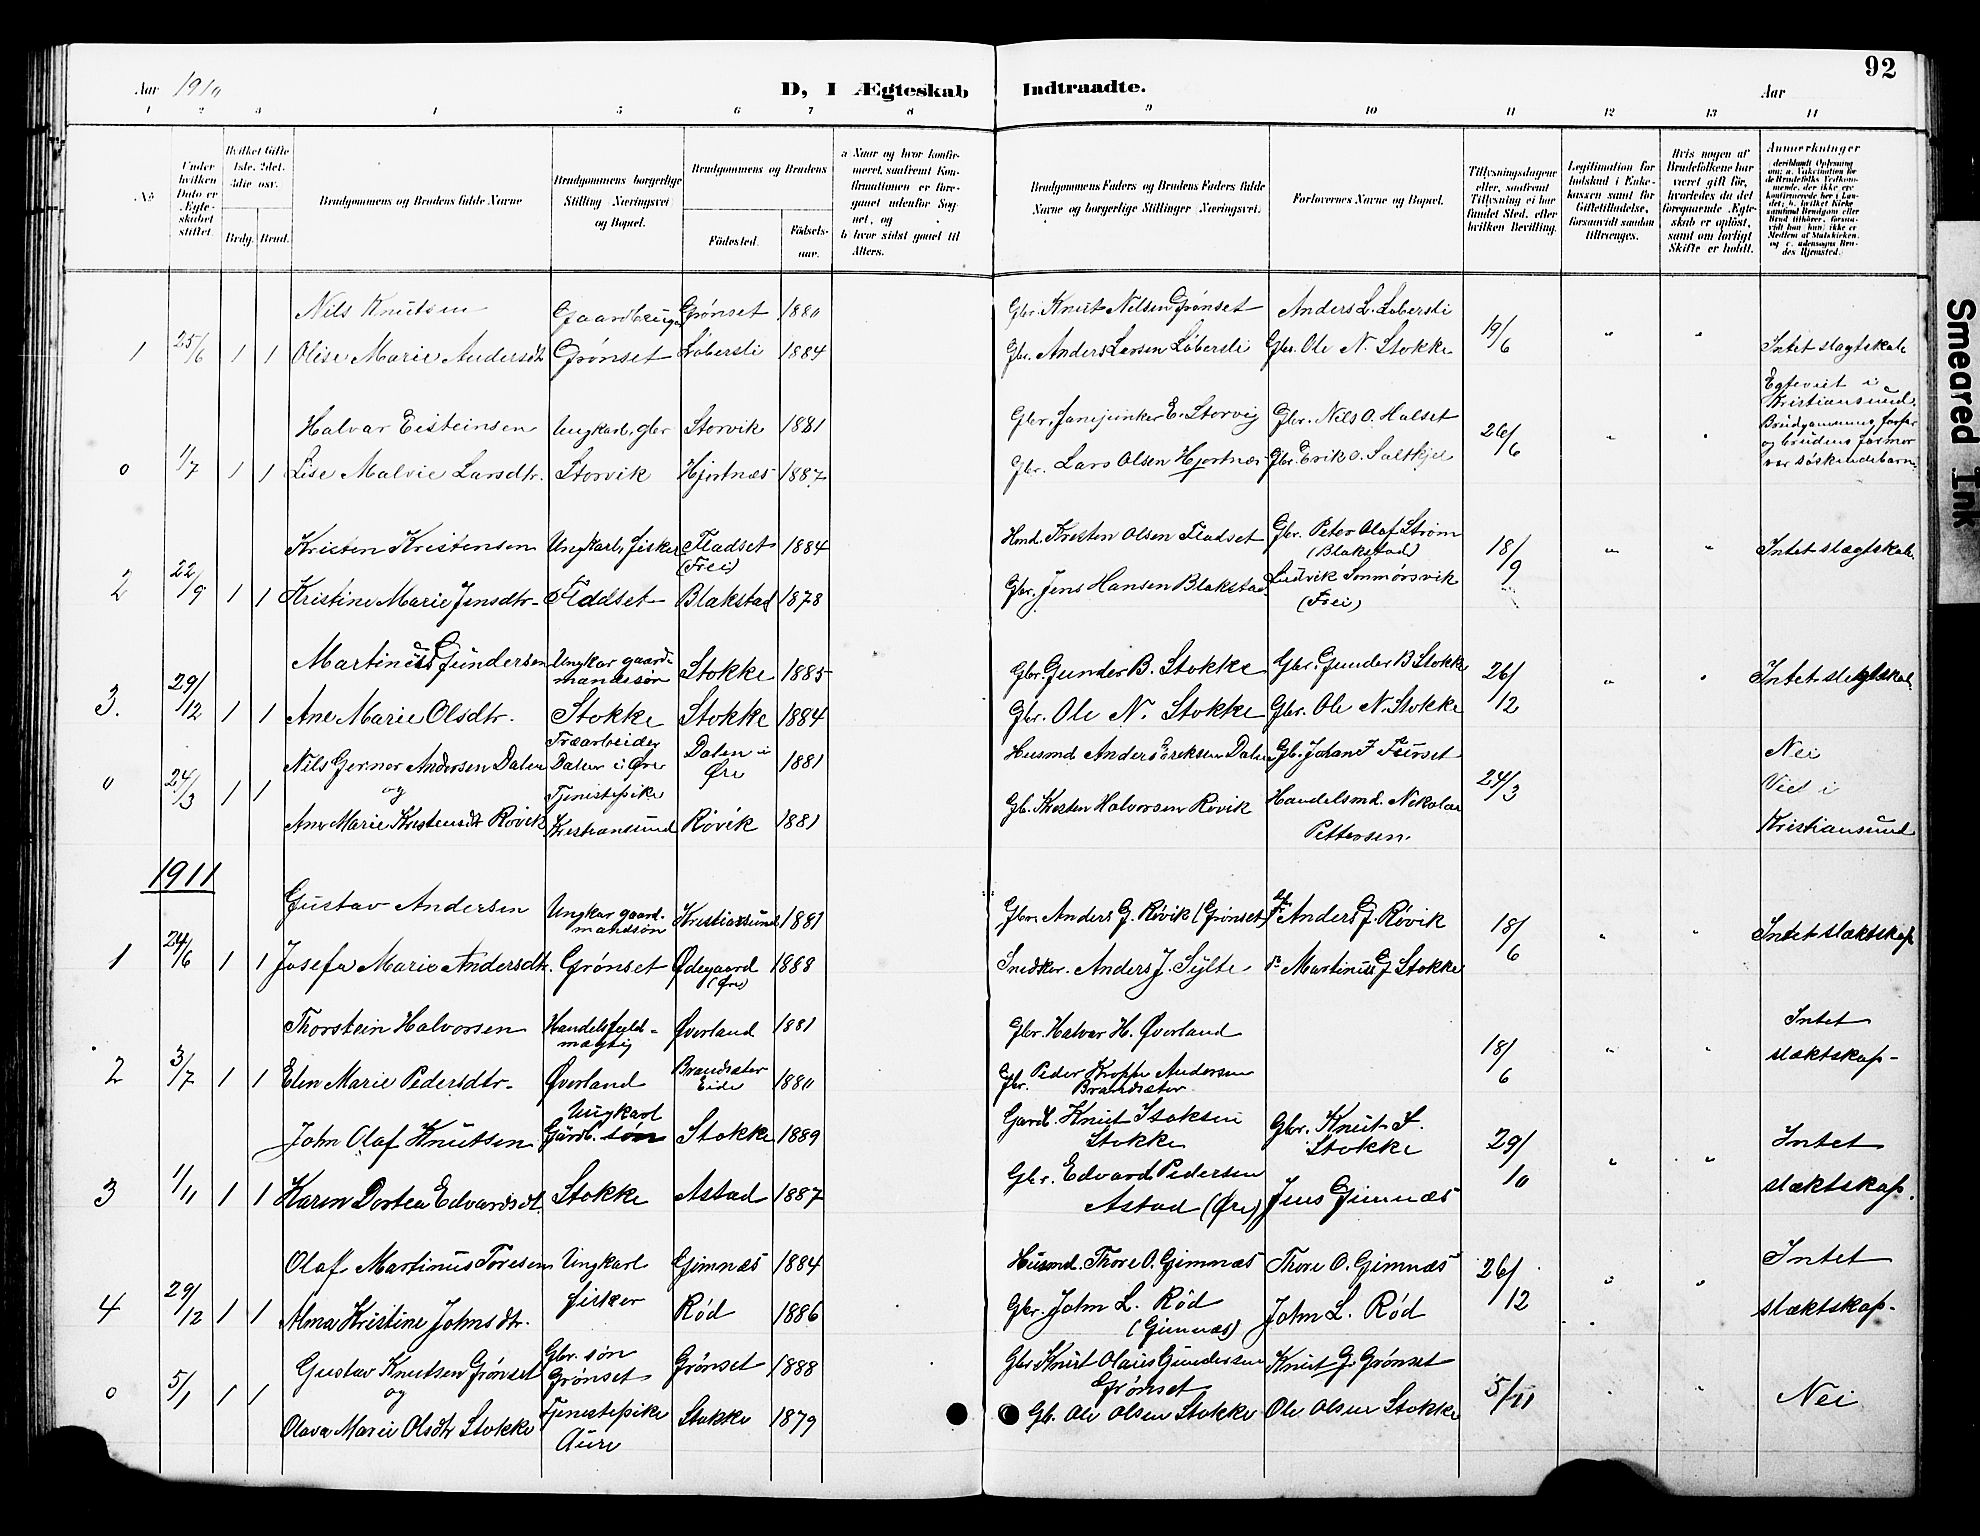 92
Aar 1910
D, I Ægteskab Indtraadte.
Aar
1 2 3 4 5 6 7 8 9 10 11 12 13 14
No
Under hvilken Dato er Ægteskabet stiftet.
Hvilket Gifte 1ste, 2det, 3die osv.
Brdg. Brud.
Brudgommens og Brudens fulde Navne
Brudgommens borgerlige Stilling Næringsvei og Bopæl.
Brudgommens og Brudens
Fødested. Fødselsaar.
a Naar og hvor konfirmeret, samt om Konfirmationen er foregaaet udenfor Sognet, og
b hvor sidst gaaet til Alters.
Brudgommens Faders og Brudens Faders fulde Navne og borgerlige Stillinger Næringsvei.
Forlovernes Navne og Bopæl.
Tillysningsdagene eller, saafremt Tillysning ei har fundet Sted, efter hvilken Bevilling.
Legitimation for Indskud i Enkekassen samt for Giftetilladelse, forsaavidt saadan tiltrænges.
Hvis nogen af Brudefolkene har været gift før, hvorledes da det foregaaende Ægteskab er opløst, samt om lovligt Skifte er holdt.
Anmerkninger
Nils Knutsen Gaardbruger Grønset 1880 Gbr. Knut Nilsen Grønset Anders L. Løbersli
1 25/6 1 1 Olise Marie Andersdtr Grønset Løbersli 1884 Gbr. Anders Larsen Løbersli Gbr. Ole N. Stokke 19/6 " " Intet slagtskab
Halvar Eisteinsen Ungkarl, gbr Storvik 1881 Gbr. Janejunker E. Storvig Gbr. Nils O. Halset
0 1/7 1 1 Lise Malvie Larsdtr. Storvik Hjortnæs 1887 Gbr. Lars Olsen Hjortnæs Gbr. Erik O. Saltkjel 26/6 " "
Egteviet i
Kristiansund.
Brudgommens farfar
og brudens farmor
var søskendebarn
Kristen Kristensen Ungkarl, fisker Fladset (Frei) 1884 Hmd. Kristen Olsen Fladset Gbr. Peter Olaf Strøm (Blakstad)
2 22/9 1 1 Kristine Marie Jensdtr. Fladset Blakstad 1878 Gbr. Jens Hansen Blakstad Ludvik Sommørsvik (Frei) 18/9 " " Intet slægtskab.
Martinus Gundersen Ungkar gaardmandssøn Stokke 1885 Gbr. Gunder B. Stokke Gbr. Gunder B Stokke
3. 29/12 1 1 Ane Marie Olsdtr. Stokke Stokke 1884 Gbr. Ole N. Stokke Gbr. Ole N. Stokke 26/12 " " Intet slegtskab.
Nils Germor Andersen Dalen Træarbeider Dalen i Øre Dalen i Øre 1881 Husmd Anders Ereksen Dalen Gb. Johan F Furset Nei
0 24/3 1 1 og Tjenestepike 24/3 Vied i
Ane Marie Kristensdt Røvik Kristiansund Røvik 1881 Gb. Kristen Halvorsen Røvik Handelsmd. Nekolai Pettersen. Kristiansund
1911
Gustav Andersen Ungkar gaardmandsøn Kristiansund 1881 Gbr. Anders G. Røvik (Grønset) Anders G. Røvik
1 24/6 1 1 Josefa Marie Andersdtr. Grønset Ødegaard (Øre) 1888 Snedker. Anders J. Sylte Martinus G Stokke 18/6 " " Intet slæktskap
Thorstein Halvorsen Handelsfuldmægtig Øverland 1881 Gbr. Halvor H. Øverland Intet
2 3/7 1 1 Elen Marie Pedersdtr. Øverland Brandsæter Eide 1880 Gbr. Peder Kroppe Andersen Brandsæter 18/6 " " slæktskap-
John Olaf Knutsen Ungkarl Gårdb. søn Stokke 1889 Gardb. Knut Isaksen Stokke Gbr. Knut I. Stokke Intet
3 1/11 1 1 Karen Dortea Edvardsdt. Stokke Astad 1887 Gbr. Edvard Pedersen Astad (Øre) Jens Gimnæs 29/10 " " slæktskap.
Olaf Martinus Toresen Ungkarl Gimnæs 1884 Husmd. Thore O. Gimnæs Thore O. Gimnæs Intet
4 29/12 1 1 Alma Kristine Johnsdtr. fisker Rød 1886 Gbr. John L. Rød (Gimnæs) John L. Rød 26/12 " " slæktskap-
Gustav Knutsen Grønset Gbr. søn Grønset Grønset 1888 Gbr Knut Olaus Gundersen Grønset Knut G. Grønset
0 5/1 1 1 og 5/11 " " Nei
Olava Marie Olsdtr Stokke Tjenestepike Aure Stokke 1879 Gb. Ole Olsen Stokke Ole Olsen Stokke
Smeared Ink